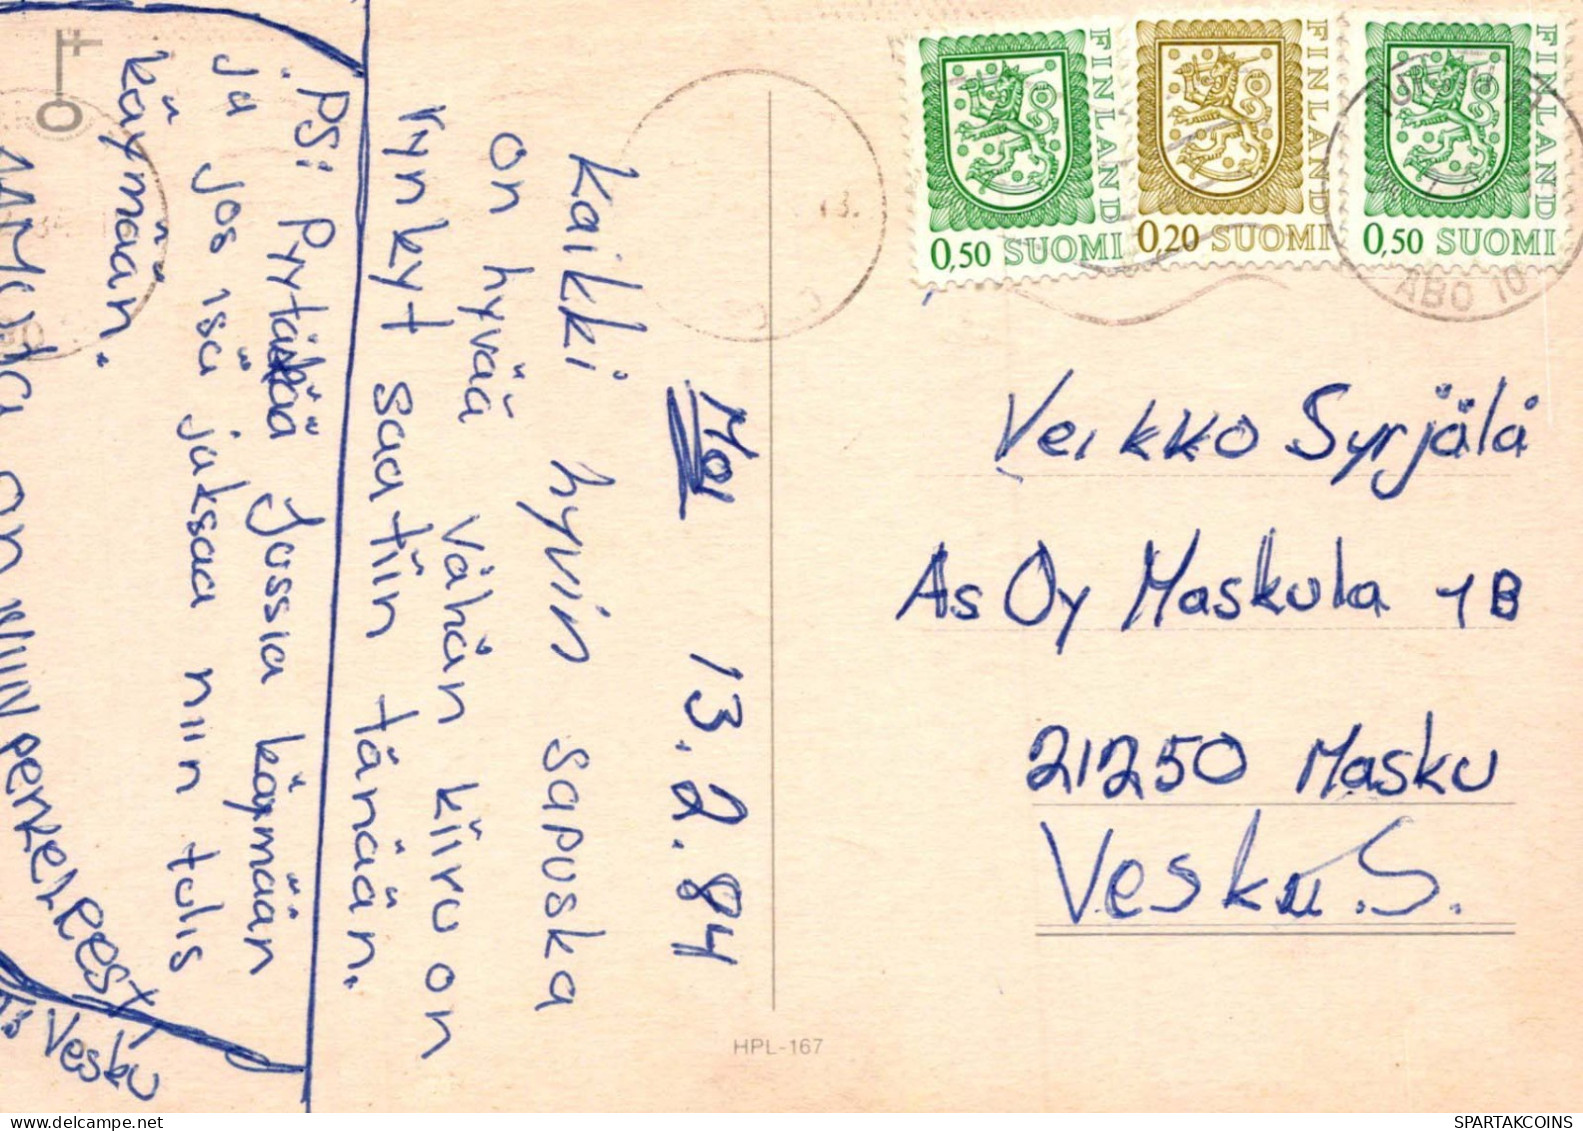 Moi 13.2.84
Kaikki hyvin sapuska
on hyvää vähän kiiru on
rynkyt saatiin tänään.
PS: Pyytäkää Jussia käymään
ja jos isä jaksaa niin tulis
käymään.
on NIIN
Vesku
FINLAND
0,50 SUOMI
FINLAND
0,20 SUOMI
FINLAND
0,50 SUOMI
ÅBO 10
13.
Veikko Syrjälä
As Oy Maskula 1B
21250 Masku
Vesku.S.
HPL-167
SPARTAKCOINS